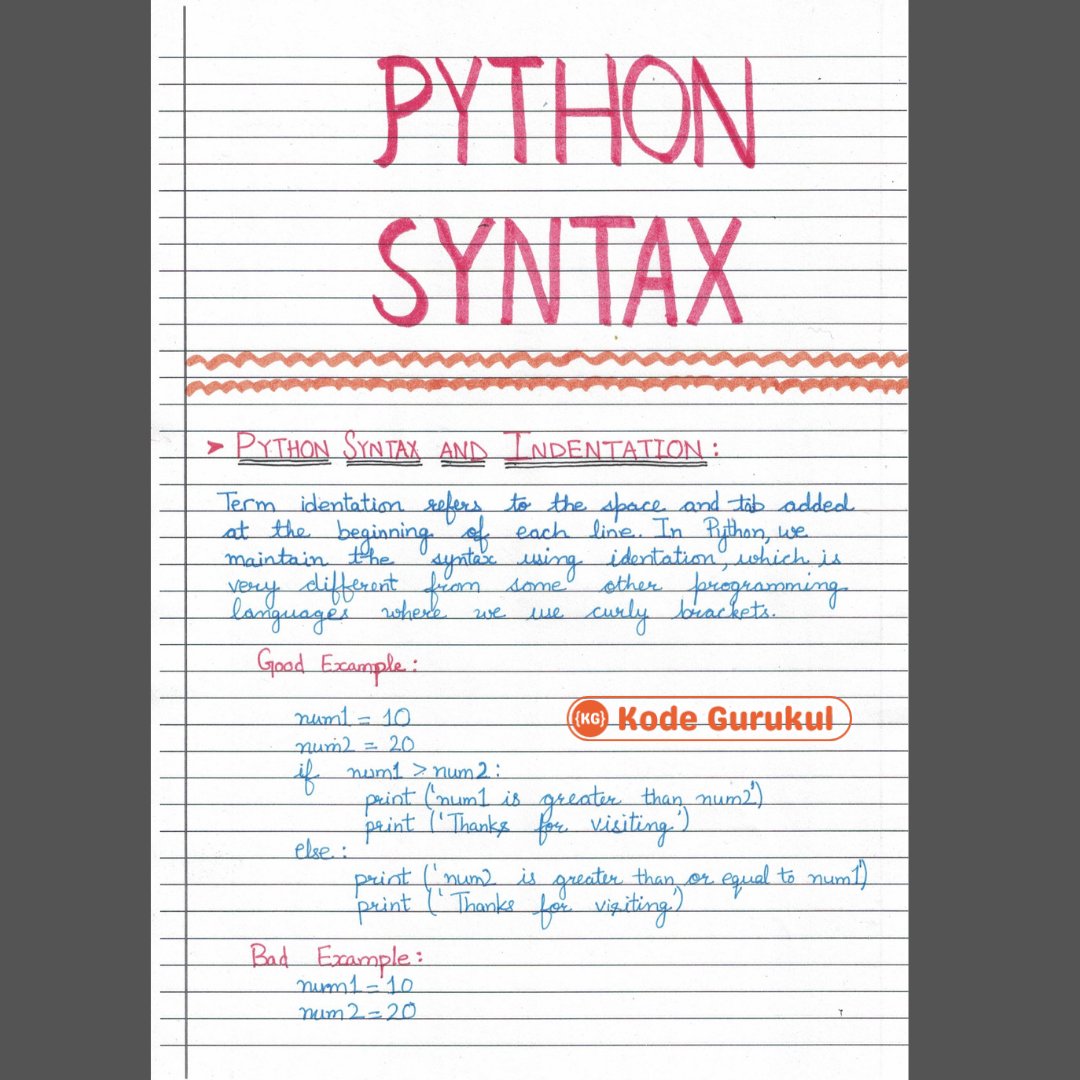 PYTHON
SYNTAX
➤ PYTHON SYNTAX AND INDENTATION:
Term identation refers to the space and tab added
at the beginning of each line. In Python, we
maintain the syntax using identation, which is
very different from some other programming
languages where we use curly brackets.
Good Example:
{KG} Kode Gurukul
num1 = 10
num2 = 20
if num1 > num2:
print ('num1 is greater than num2')
print ('Thanks for visiting')
else:
print ('num2 is greater than or equal to num1')
print ('Thanks for visiting')
Bad Example:
num1 = 10
num2 = 20